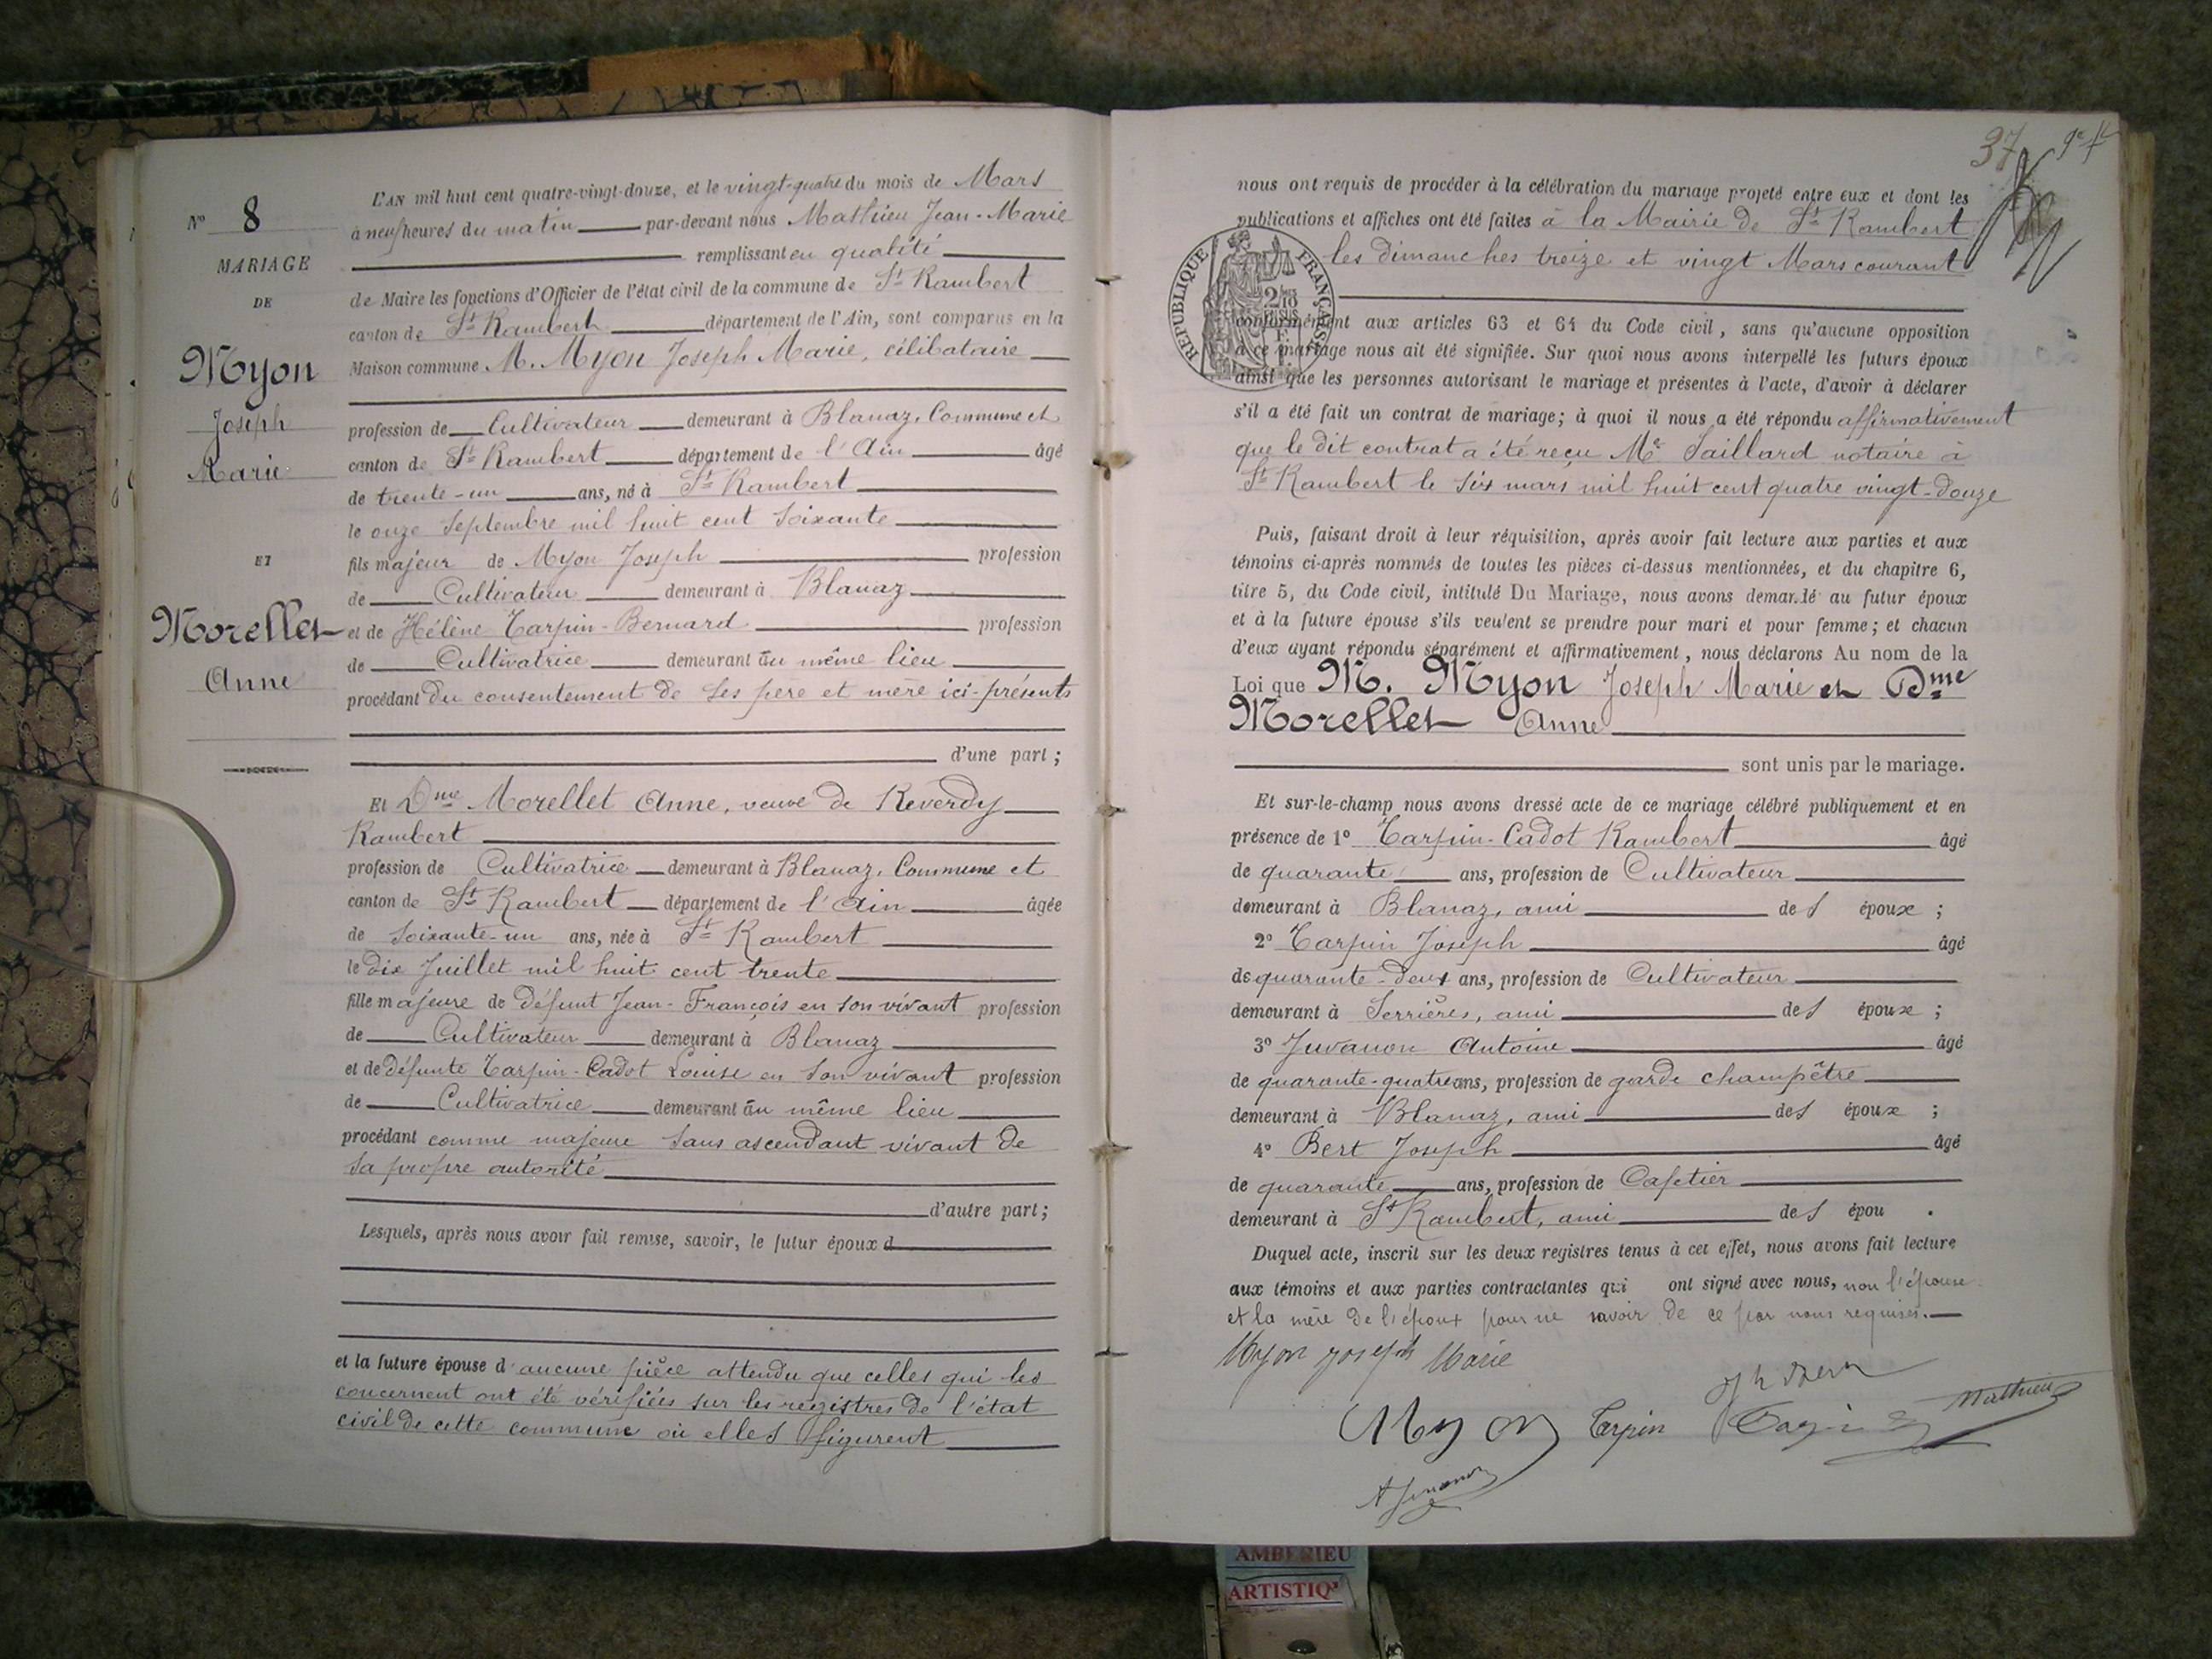 N° 8
MARIAGE
DE
Myon
Joseph
Marie
ET
Morellet
Anne
L'AN mil huit cent quatre-vingt-douze, et le vingt-quatre du mois de Mars
à neuf heures du matin par-devant nous Mathieu Jean-Marie
remplissant en qualité
de Maire les fonctions d'Officier de l'état civil de la commune de St Rambert
canton de St Rambert département de l'Ain, sont comparus en la
Maison commune M. Myon Joseph Marie, célibataire
profession de Cultivateur demeurant à Blanaz, Commune et
canton de St Rambert département de l'Ain âgé
de trente-un ans, né à St Rambert
le onze Septembre mil huit cent soixante
fils majeur de Myon Joseph profession
de Cultivateur demeurant à Blanaz
et de Hélène Tarpin-Bernard profession
de Cultivatrice demeurant au même lieu
procédant du consentement de ses père et mère ici-présents
d'une part ;
Et Dme Morellet Anne, veuve de Reverdy
Rambert
profession de Cultivatrice demeurant à Blanaz, Commune et
canton de St Rambert département de l'Ain âgée
de soixante-un ans, née à St Rambert
le dix Juillet mil huit cent trente
fille majeure de défunt Jean-François en son vivant profession
de Cultivateur demeurant à Blanaz
et de défunte Tarpin-Cadot Louise en son vivant profession
de Cultivatrice demeurant au même lieu
procédant comme majeure sans ascendant vivant de
sa propre autorité
d'autre part ;
Lesquels, après nous avoir fait remise, savoir, le futur époux d
et la future épouse d'aucune pièce attendu que celles qui les
concernent ont été vérifiées sur les registres de l'état
civil de cette commune où elles figurent
37
nous ont requis de procéder à la célébration du mariage projeté entre eux et dont les
publications et affiches ont été faites à la Mairie de St Rambert
les dimanches treize et vingt Mars courant
REPUBLIQUE FRANÇAISE
conformément aux articles 63 et 64 du Code civil, sans qu'aucune opposition
à ce mariage nous ait été signifiée. Sur quoi nous avons interpellé les futurs époux
ainsi que les personnes autorisant le mariage et présentes à l'acte, d'avoir à déclarer
s'il a été fait un contrat de mariage ; à quoi il nous a été répondu affirmativement
que le dit contrat a été reçu Me Saillard notaire à
St Rambert le six mars mil huit cent quatre vingt-douze
Puis, faisant droit à leur réquisition, après avoir fait lecture aux parties et aux
témoins ci-après nommés de toutes les pièces ci-dessus mentionnées, et du chapitre 6,
titre 5, du Code civil, intitulé Du Mariage, nous avons demandé au futur époux
et à la future épouse s'ils veulent se prendre pour mari et pour femme ; et chacun
d'eux ayant répondu séparément et affirmativement, nous déclarons Au nom de la
Loi que M. Myon Joseph Marie et Dme
Morellet Anne
sont unis par le mariage.
Et sur-le-champ nous avons dressé acte de ce mariage célébré publiquement et en
présence de 1° Tarpin-Cadot Rambert âgé
de quarante ans, profession de Cultivateur
demeurant à Blanaz, ami des époux ;
2° Tarpin Joseph âgé
de quarante-deux ans, profession de Cultivateur
demeurant à Serrières, ami des époux ;
3° Juvanon Antoine âgé
de quarante-quatre ans, profession de garde champêtre
demeurant à Blanaz, ami des époux ;
4° Bert Joseph âgé
de quarante ans, profession de Cafetier
demeurant à St Rambert, ami des épou .
Duquel acte, inscrit sur les deux registres tenus à cet effet, nous avons fait lecture
aux témoins et aux parties contractantes qui ont signé avec nous, non l'épouse
et la mère de l'époux pour ne savoir de ce par nous requises.
Myon joseph Marie
Myon Tarpin Mathieu
A Juvanon
AMBERIEU
ARTISTIQ